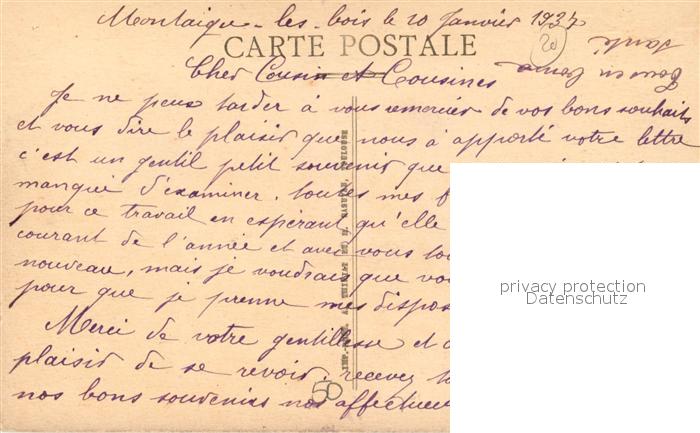 Montaigu-les-bois le 10 Janvier 1937
20
CARTE POSTALE
Cher Cousin et Cousines
Je ne peux tarder à vous remercier de vos bons souhaits
et vous dire le plaisir que nous à apporté votre lettre
c'est un gentil petit souvenir que
manqué d'examiner. toutes mes
pour ce travail en espérant qu'elle
courant de l'année et avec vous
nouveau, mais je voudrais que
pour que je prenne mes
Merci de votre gentillesse et
plaisir de se revoir. recevez
nos bons souvenirs nos
50
privacy protection
Datenschutz